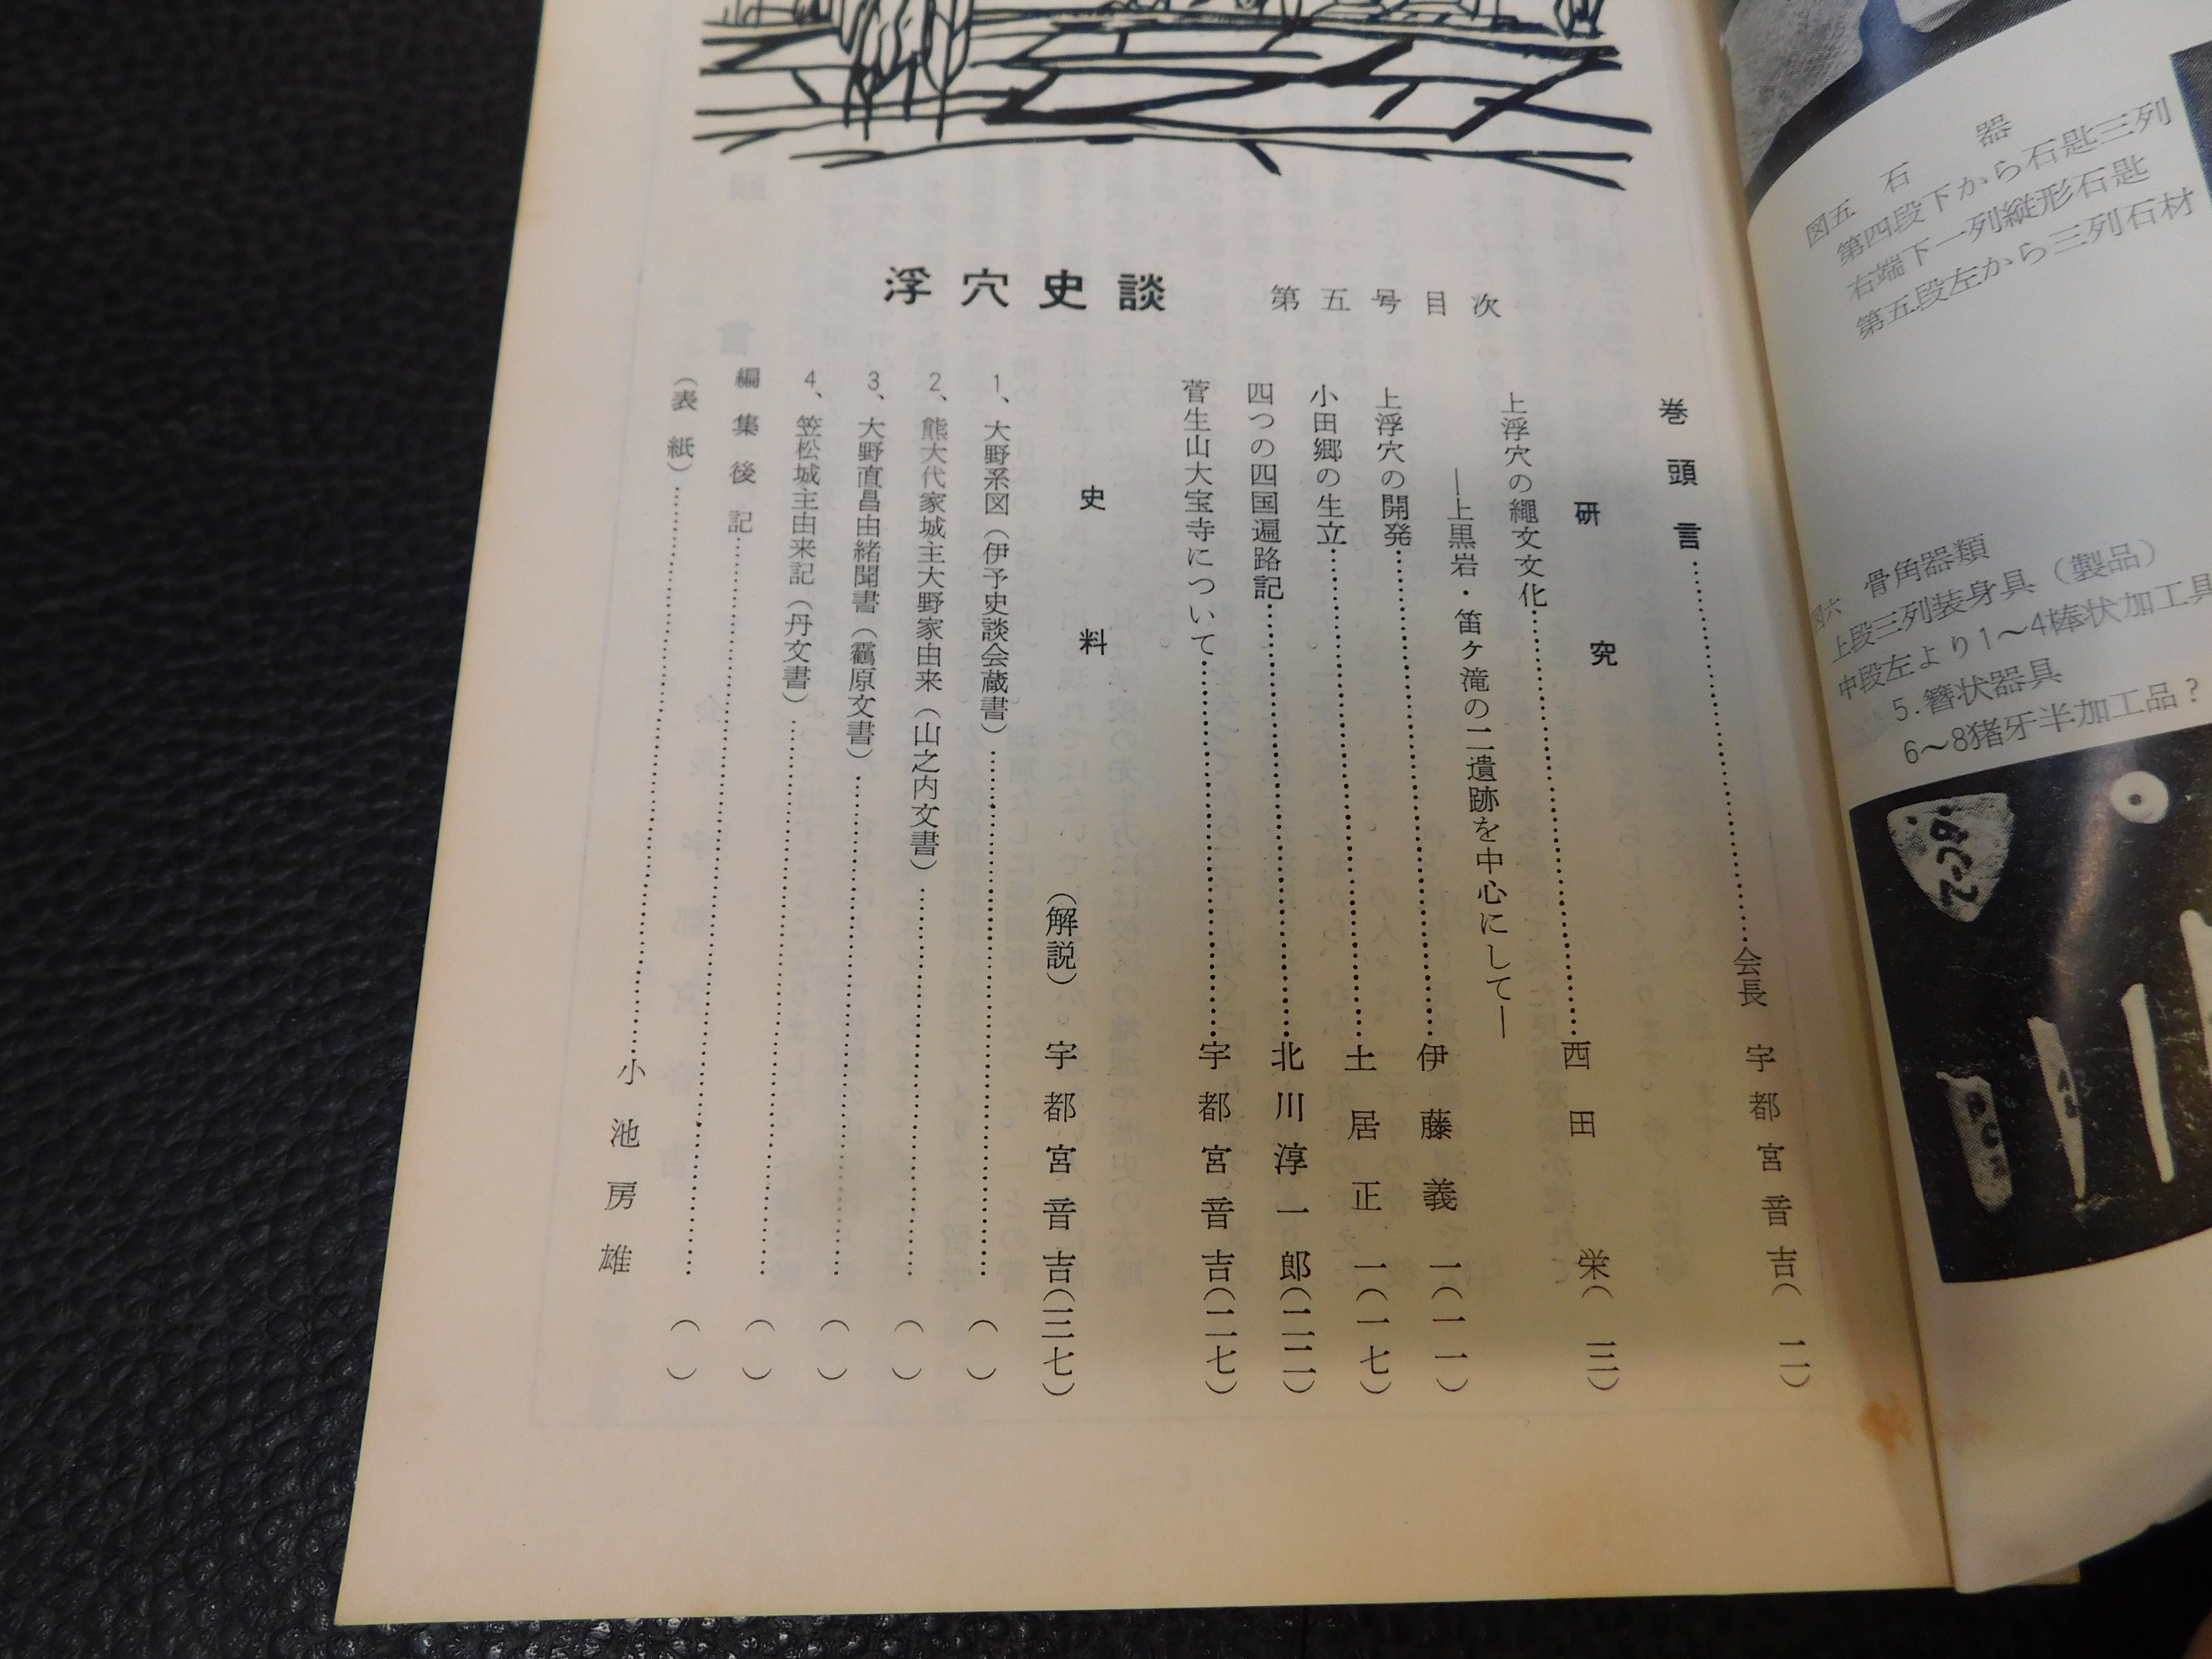 浮穴史談　第五号目次
巻頭言……会長　宇都宮音吉（二）
研究
上浮穴の縄文文化……西田　栄（三）
―上黒岩・笛ヶ滝の二遺跡を中心にして―
上浮穴の開発……伊藤義一（一一）
小田郷の生立……土居正一（一七）
四つの四国遍路記……北川淳一郎（二二）
菅生山大宝寺について……宇都宮音吉（二七）
史料　（解説）宇都宮音吉（三七）
1、大野系図（伊予史談会蔵書）……（　）
2、熊大代家城主大野家由来（山之内文書）……（　）
3、大野直昌由緒聞書（靍原文書）……（　）
4、笠松城主由来記（丹文書）……（　）
編集後記……（　）
（表紙）……小池房雄
図五　石器
第四段下から石匙三列
右端下一列縦形石匙
第五段左から三列石材
図六　骨角器類
上段三列装身具（製品）
中段左より1～4棒状加工具
5.簪状器具
6～8猪牙半加工品？